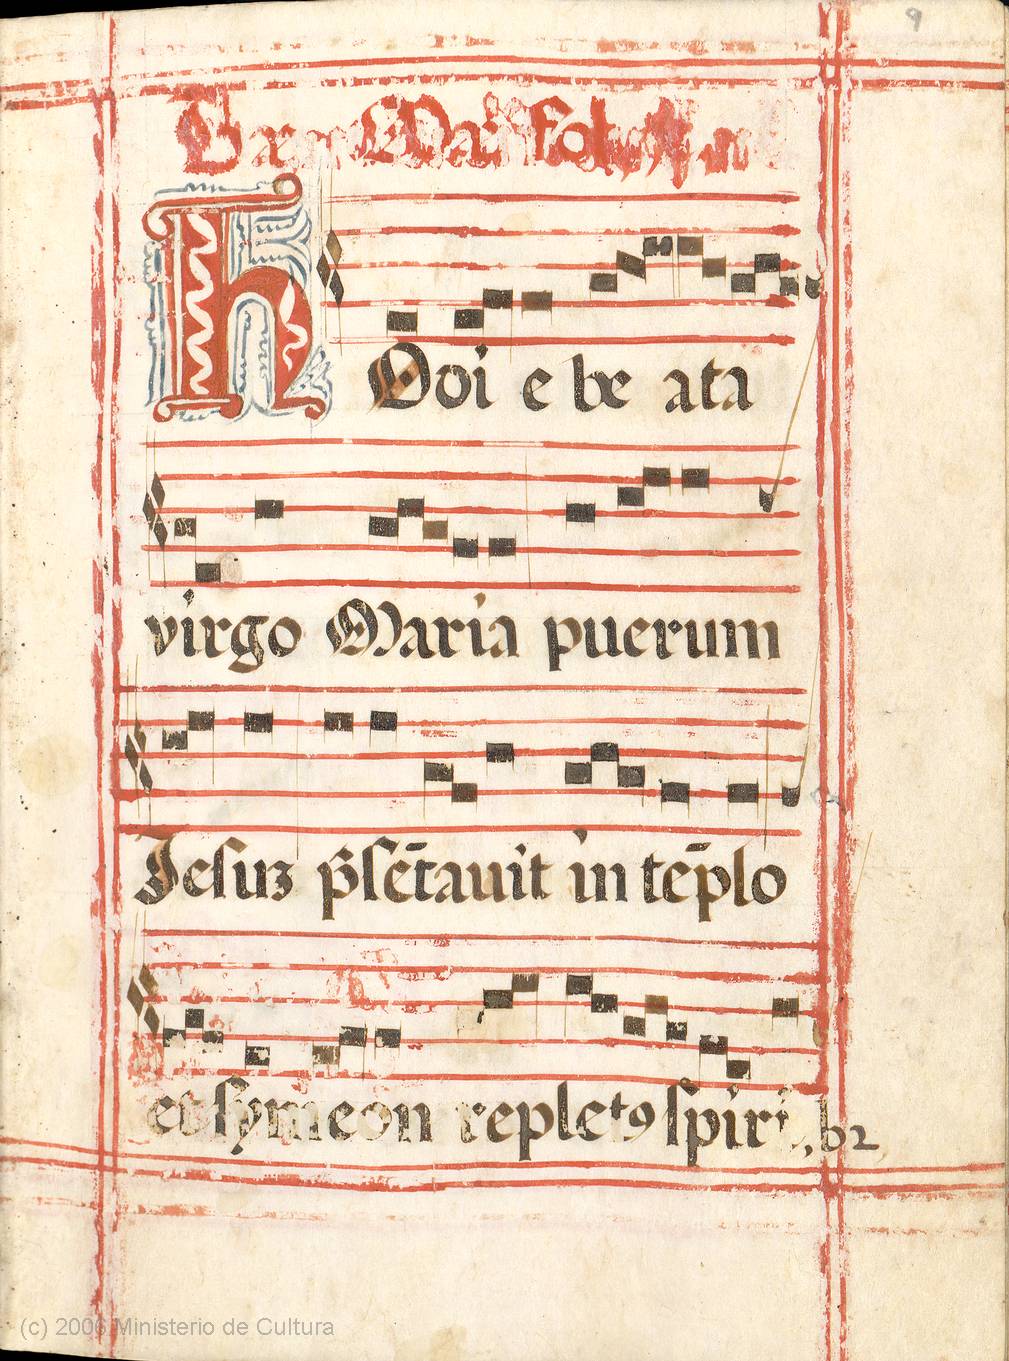 9
H Ooi e be ata
virgo Maria puerum
Jesuʒ p̄sētavit in tēplo
et symeon replet9 spiri
(c) 2006 Ministerio de Cultura